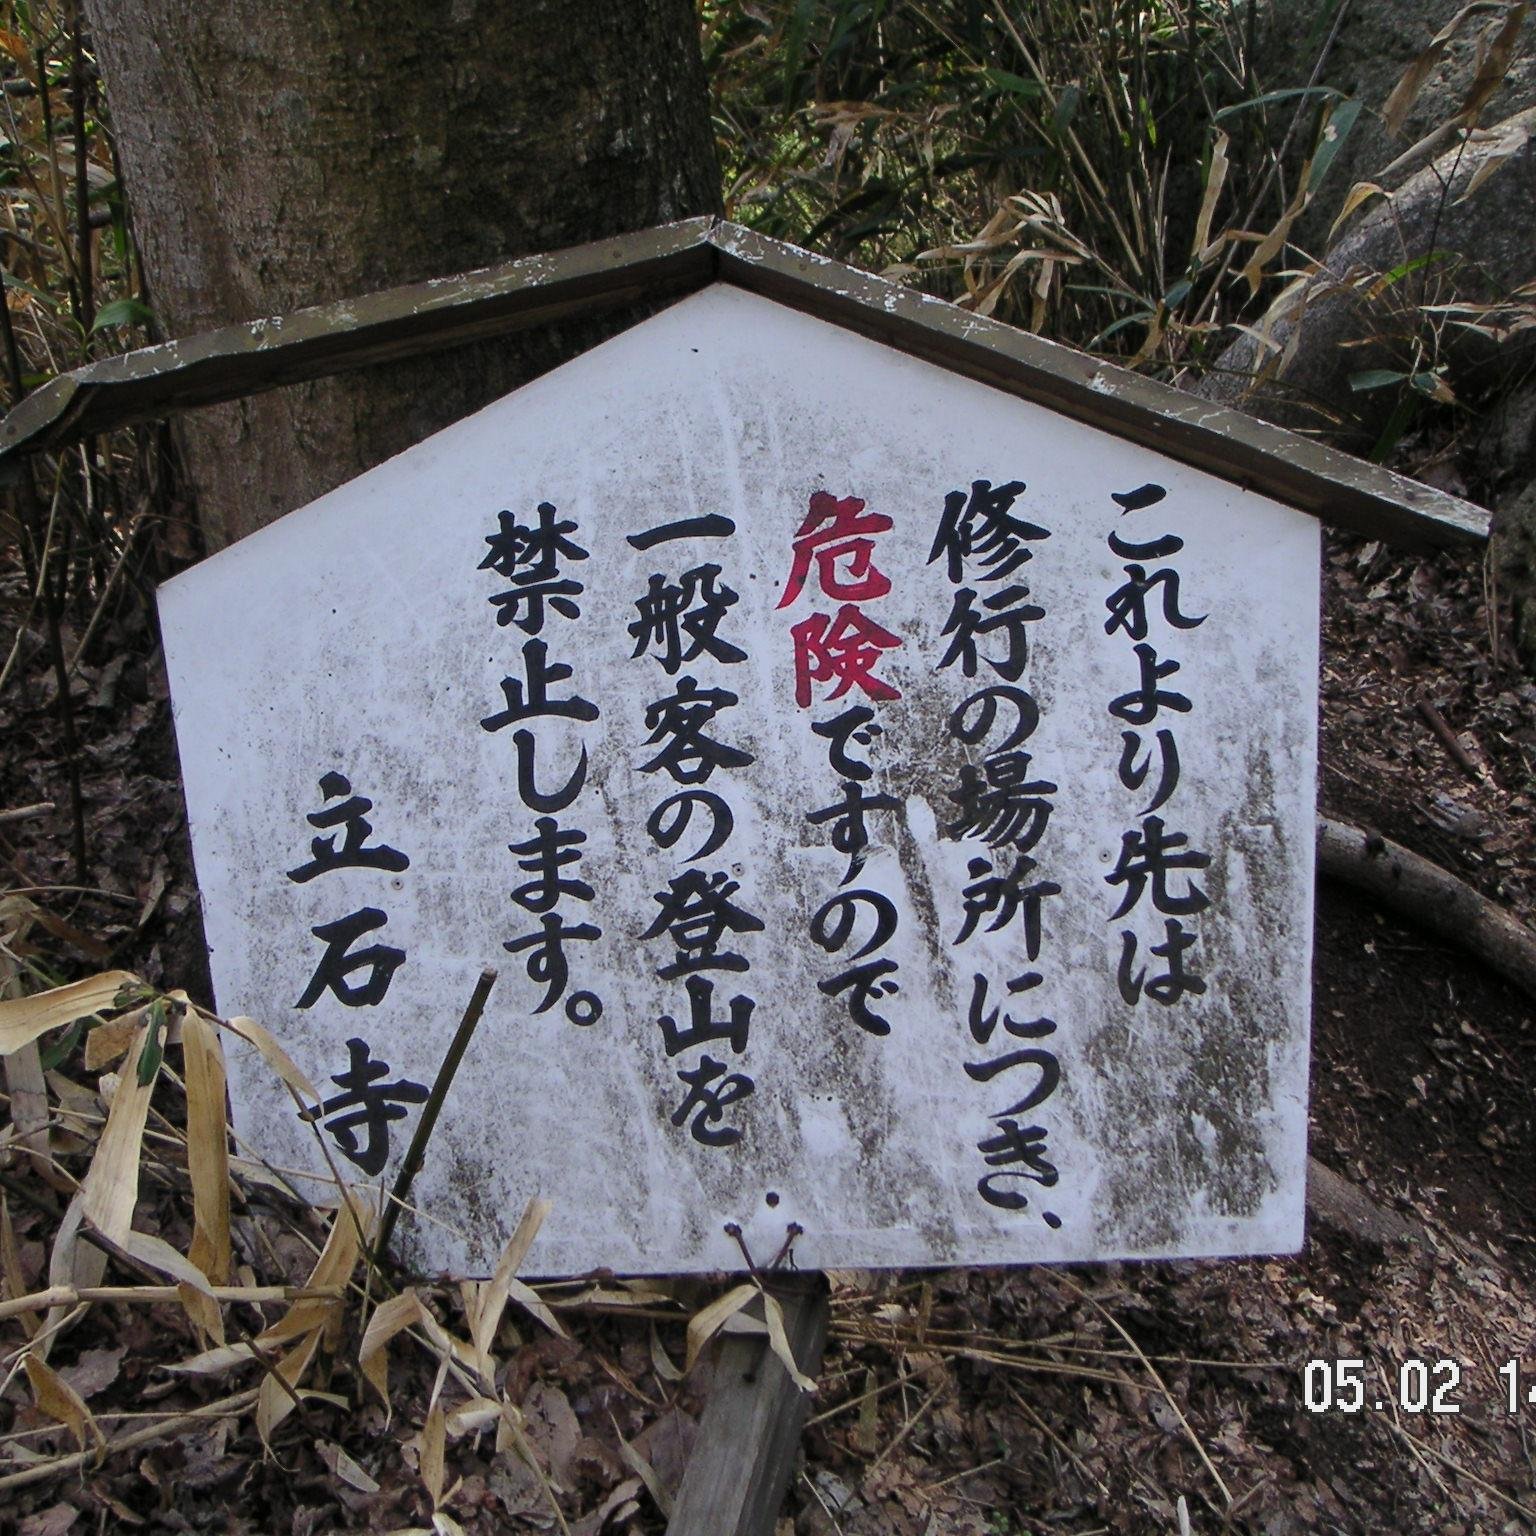 これより先は
修行の場所につき、
危険ですので
一般客の登山を
禁止します。
立石寺
05.02 14